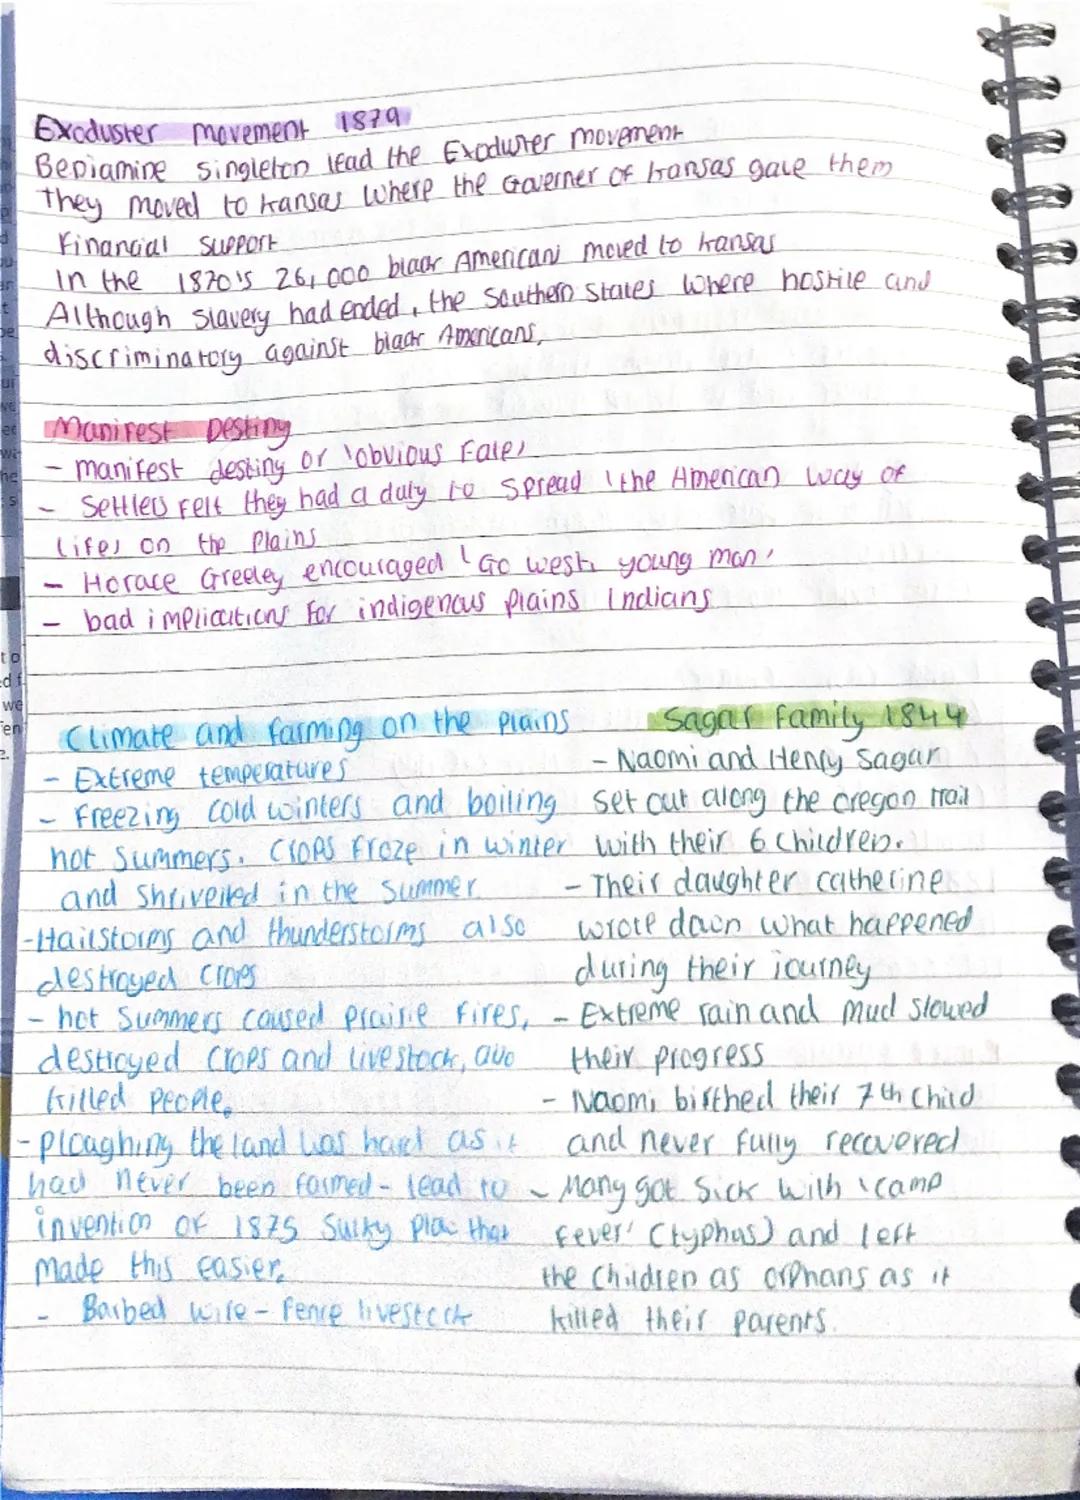 Exoduster movement 1879
Benjamine Singleton lead the Exoduster movement
They moved to Kansas Where the Governer of Kansas gave them
Financial support
In the 1870's 26,000 black Americans moved to Kansas
Although slavery had ended, the Southern States where hostile and
discriminatory against black Americans,
Manifest Destiny
- manifest destiny or 'obvious Fate'
- Settlers felt they had a duty to spread 'the American way of
life' on the Plains
- Horace Greeley encouraged 'Go west, young man'
- bad implications for indigenous plains Indians
Climate and farming on the plains
- Extreme temperatures
- Freezing cold winters and boiling
hot Summers. Crops froze in winter
and shriveiled in the Summer.
- Hailstorms and thunderstorms also
destroyed crops
- hot Summers caused prairie fires,
destroyed crops and livestock, also
killed people.
- Ploughing the land was hard as it
had never been farmed - lead to
invention of 1875 Sulky Plow that
made this easier.
- Barbed wire - fence livestock
Sagar family 1844
- Naomi and Henry Sagar
set out along the oregon trail
with their 6 children.
- Their daughter catherine
wrote down what happened
during their journey
- Extreme rain and mud slowed
their progress
- Naomi birthed their 7th child
and never fully recovered
- Many got sick with 'camp
fever' (typhus) and left
the children as orphans as it
killed their parents.
to
ed f
we